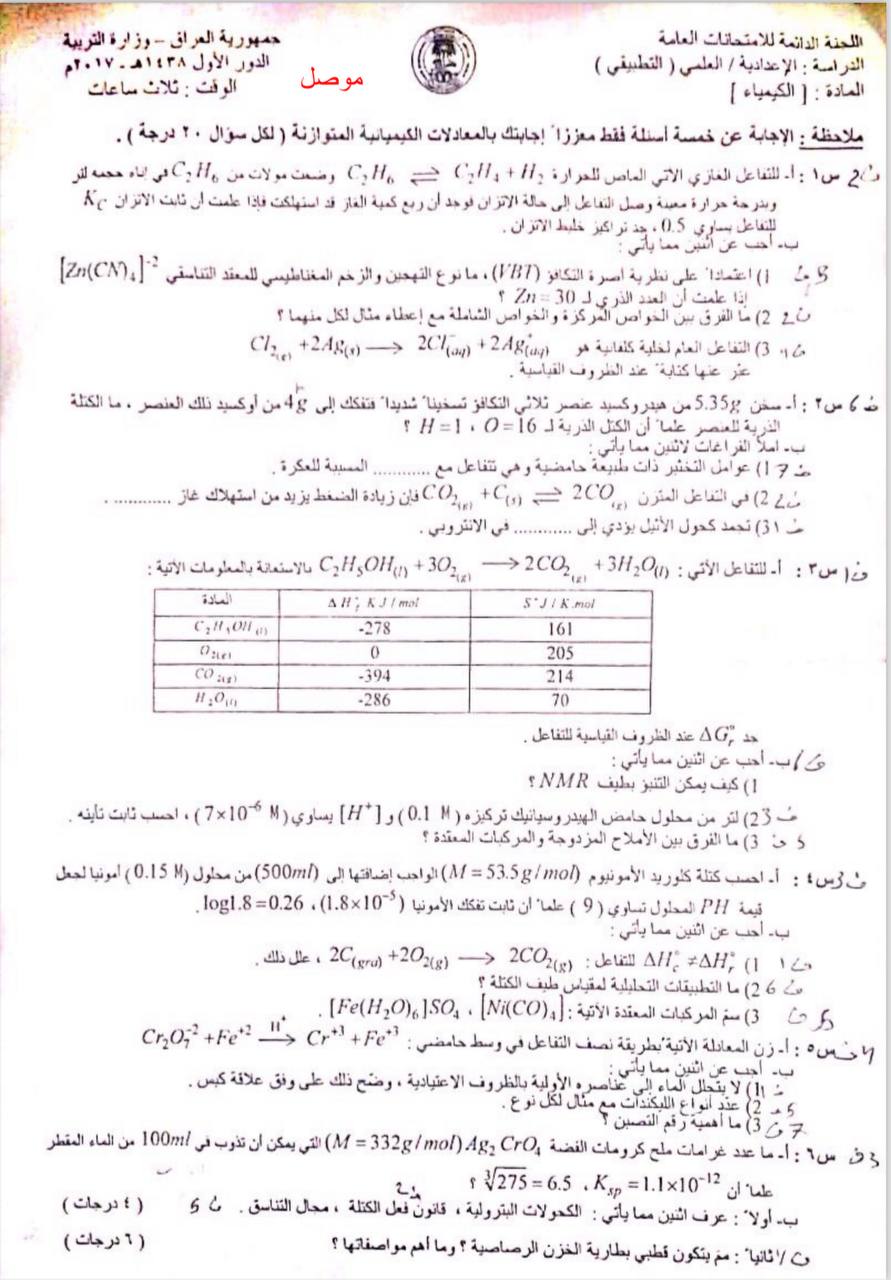 جمهورية العراق – وزارة التربية
الدور الأول ١٤٣٨هـ - ٢٠١٧م
الوقت : ثلاث ساعات
موصل
اللجنة الدائمة للامتحانات العامة
الدراسة : الإعدادية / العلمي ( التطبيقي )
المادة : [ الكيمياء ]
ملاحظة : الإجابة عن خمسة أسئلة فقط معززاً إجابتك بالمعادلات الكيميائية المتوازنة ( لكل سؤال ٢٠ درجة ) .
س١ : أ- للتفاعل الغازي الآتي الماص للحرارة C₂H₆ ⇌ C₂H₄ + H₂ وضعت مولات من C₂H₆ في إناء حجمه لتر
وبدرجة حرارة معينة وصل التفاعل إلى حالة الاتزان فوجد أن ربع كمية الغاز قد استهلكت فإذا علمت أن ثابت الاتزان K_C
للتفاعل يساوي 0.5 ، جد تراكيز خليط الاتزان .
ب- أجب عن اثنين مما يأتي :
1) اعتماداً على نظرية آصرة التكافؤ (VBT) ، ما نوع التهجين والزخم المغناطيسي للمعقد التناسقي [Zn(CN)₄]⁻²
إذا علمت أن العدد الذري لـ Zn = 30 ؟
2) ما الفرق بين الخواص المركزة والخواص الشاملة مع إعطاء مثال لكل منهما ؟
3) التفاعل العام لخلية كلفانية هو Cl₂(g) + 2Ag(s) ⟶ 2Cl⁻(aq) + 2Ag⁺(aq)
عبّر عنها كتابةً عند الظروف القياسية .
س٢ : أ- سخن 5.35g من هيدروكسيد عنصر ثلاثي التكافؤ تسخيناً شديداً فتفكك إلى 4g من أوكسيد ذلك العنصر ، ما الكتلة
الذرية للعنصر علماً أن الكتل الذرية لـ O = 16 ، H = 1 ؟
ب- املأ الفراغات لاثنين مما يأتي :
1) عوامل التخثير ذات طبيعة حامضية وهي تتفاعل مع ............ المسببة للعكرة .
2) في التفاعل المتزن CO₂(g) + C(s) ⇌ 2CO(g) فإن زيادة الضغط يزيد من استهلاك غاز ............ .
3) تجمد كحول الأثيل يؤدي إلى ............ في الانتروبي .
س٣ : أ- للتفاعل الآتي : C₂H₅OH(l) + 3O₂(g) ⟶ 2CO₂(g) + 3H₂O(l) بالاستعانة بالمعلومات الآتية :
المادة ΔH°f KJ / mol S° J / K.mol
C₂H₅OH(l) -278 161
O₂(g) 0 205
CO₂(g) -394 214
H₂O(l) -286 70
جد ΔG°r عند الظروف القياسية للتفاعل .
ب- أجب عن اثنين مما يأتي :
1) كيف يمكن التنبؤ بطيف NMR ؟
2) لتر من محلول حامض الهيدروسيانيك تركيزه ( 0.1 M ) و [H⁺] يساوي ( 7×10⁻⁶ M ) ، احسب ثابت تأينه .
3) ما الفرق بين الأملاح المزدوجة والمركبات المعقدة ؟
س٤ : أ- احسب كتلة كلوريد الأمونيوم (M = 53.5 g / mol) الواجب إضافتها إلى (500ml) من محلول ( 0.15 M) أمونيا لجعل
قيمة PH المحلول تساوي ( 9 ) علماً أن ثابت تفكك الأمونيا ( 1.8×10⁻⁵ ) ، log1.8 = 0.26 .
ب- أجب عن اثنين مما يأتي :
1) ΔH°c ≠ ΔH°r للتفاعل : 2C(gra) + 2O₂(g) ⟶ 2CO₂(g) ، علل ذلك .
2) ما التطبيقات التحليلية لمقياس طيف الكتلة ؟
3) سمّ المركبات المعقدة الآتية : [Ni(CO)₄] ، [Fe(H₂O)₆]SO₄ .
س٥ : أ- زن المعادلة الآتية بطريقة نصف التفاعل في وسط حامضي : Cr₂O₇⁻² + Fe⁺² —H⁺→ Cr⁺³ + Fe⁺³
ب- أجب عن اثنين مما يأتي :
1) لا يتحلل الماء إلى عناصره الأولية بالظروف الاعتيادية ، وضّح ذلك على وفق علاقة كبس .
2) عدّد أنواع الليكندات مع مثال لكل نوع .
3) ما أهمية رقم التصبين ؟
س٦ : أ- ما عدد غرامات ملح كرومات الفضة Ag₂CrO₄ (M = 332 g / mol) التي يمكن أن تذوب في 100ml من الماء المقطر
علماً أن Ksp = 1.1×10⁻¹² ، ∛275 = 6.5 ؟
ب- أولاً : عرف اثنين مما يأتي : الكحولات البترولية ، قانون فعل الكتلة ، مجال التناسق . ( ٤ درجات )
ثانياً : ممّ يتكون قطبي بطارية الخزن الرصاصية ؟ وما أهم مواصفاتها ؟ ( ٦ درجات )